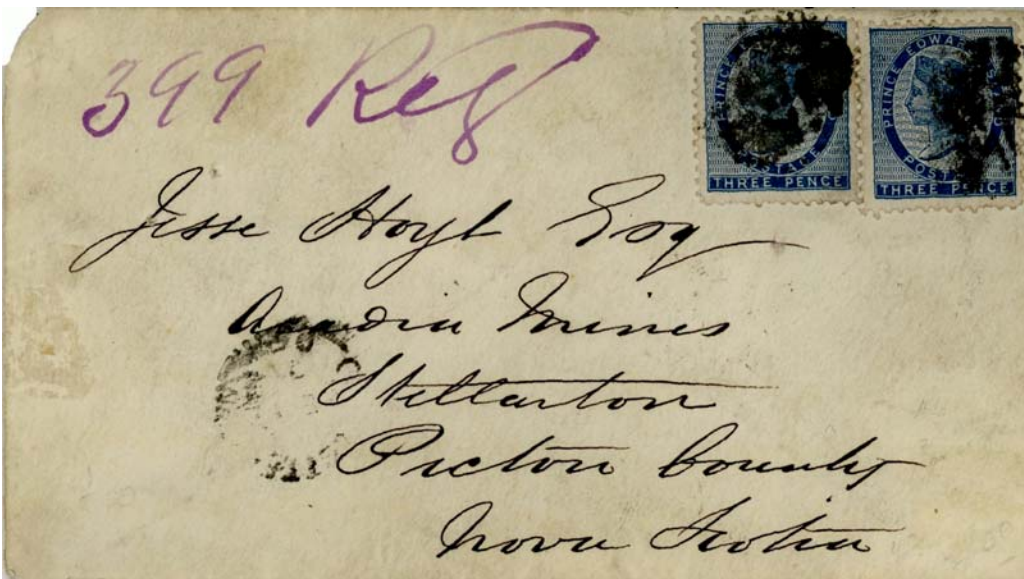 399 Reg
PRINCE
POSTAGE
THREE PENCE
PRINCE EDWARD
POST
THREE PENCE
Jesse Hoyt Esq
Acadia Mines
Stellarton
Pictou County
Nova Scotia